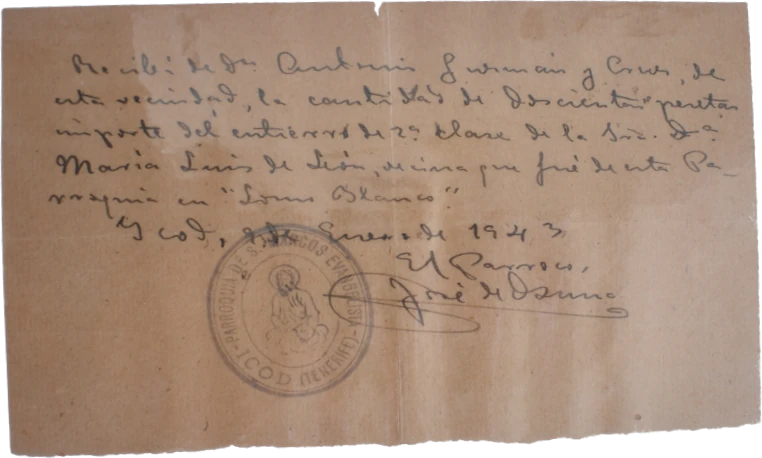 Recibí de Dn. Antonio Guzmán y Cruz, de
esta vecindad, la cantidad de doscientas pesetas
importe del entierro de 2ª clase de la Sra. Dª
María Luis de León, vecina que fué de esta Pa-
rroquia en "Lomo Blanco".
Ycod, 9 de Enero de 1943
El Párroco,
José de Osuna
PARROQUIA DE S. MARCOS EVANGELISTA
ICOD (TENERIFE)